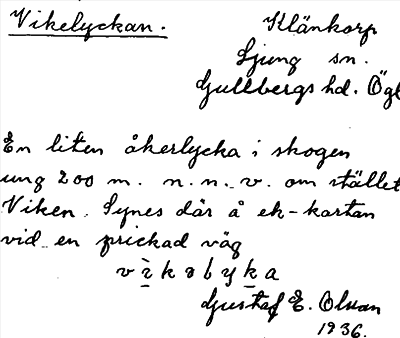 Vikelyckan. Klänkorp
Ljung sn.
Gullbergs hd. Ög
En liten åkerlycka i skogen
ung 200 m. n.n.v. om stället
Viken. Synes där å ek-kartan
vid en prickad väg
Gustaf E. Olsson
1936.